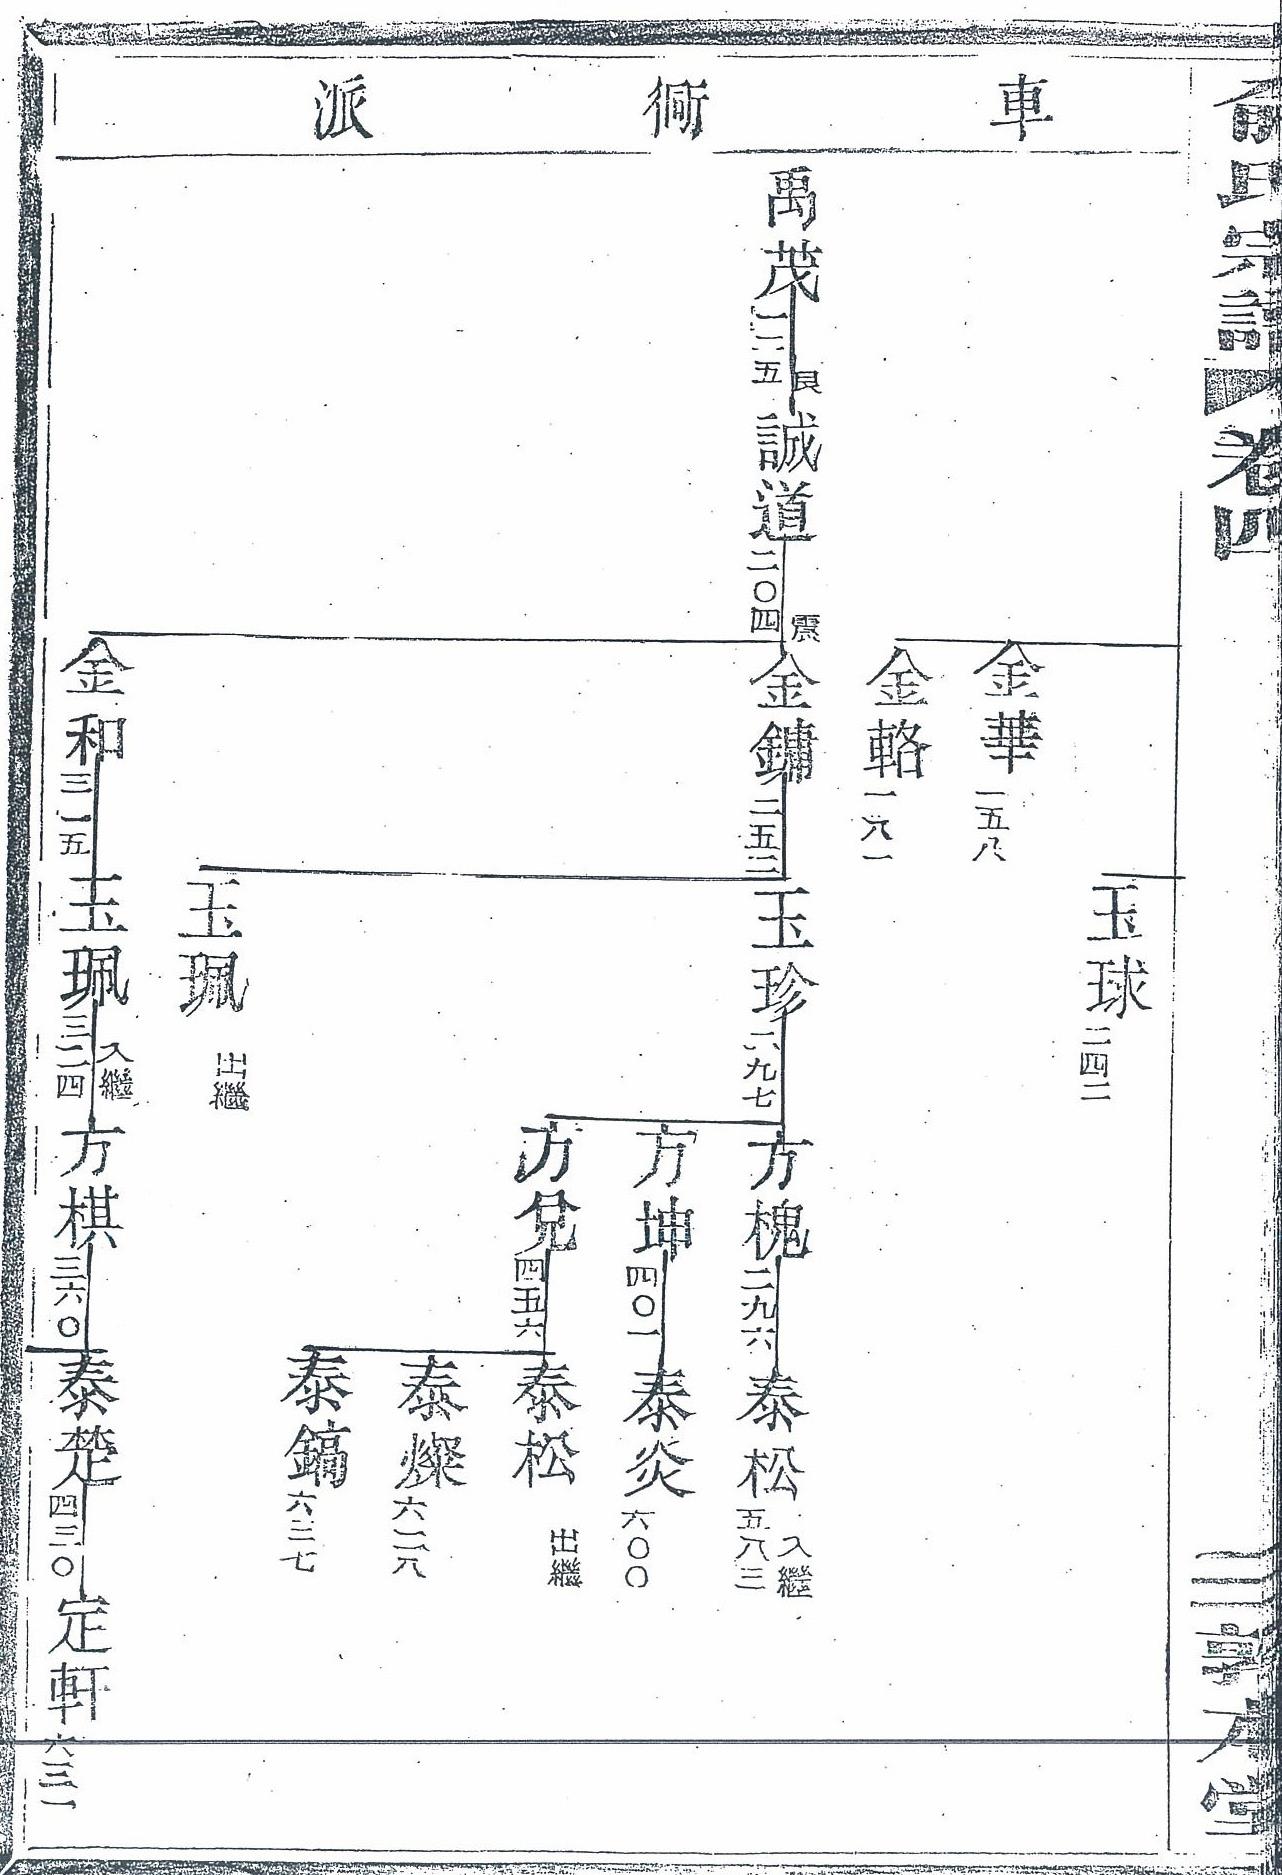 俞氏宗譜
卷四
敦本堂
車衕派
玉球
二四二
金華
一五八
金輅
一八一
禹茂
一二五
艮
誠道
二〇四
震
金鏞
二五二
玉珍
二九七
方槐
二九六
泰松
五八三
入繼
方坤
四〇一
泰炎
六〇〇
方兌
四五六
泰松
出繼
泰燦
六二八
泰鎬
六三七
玉珮
出繼
金和
三一五
玉珮
三二四
入繼
方棋
三六〇
泰楚
四三〇
定軒
六三一